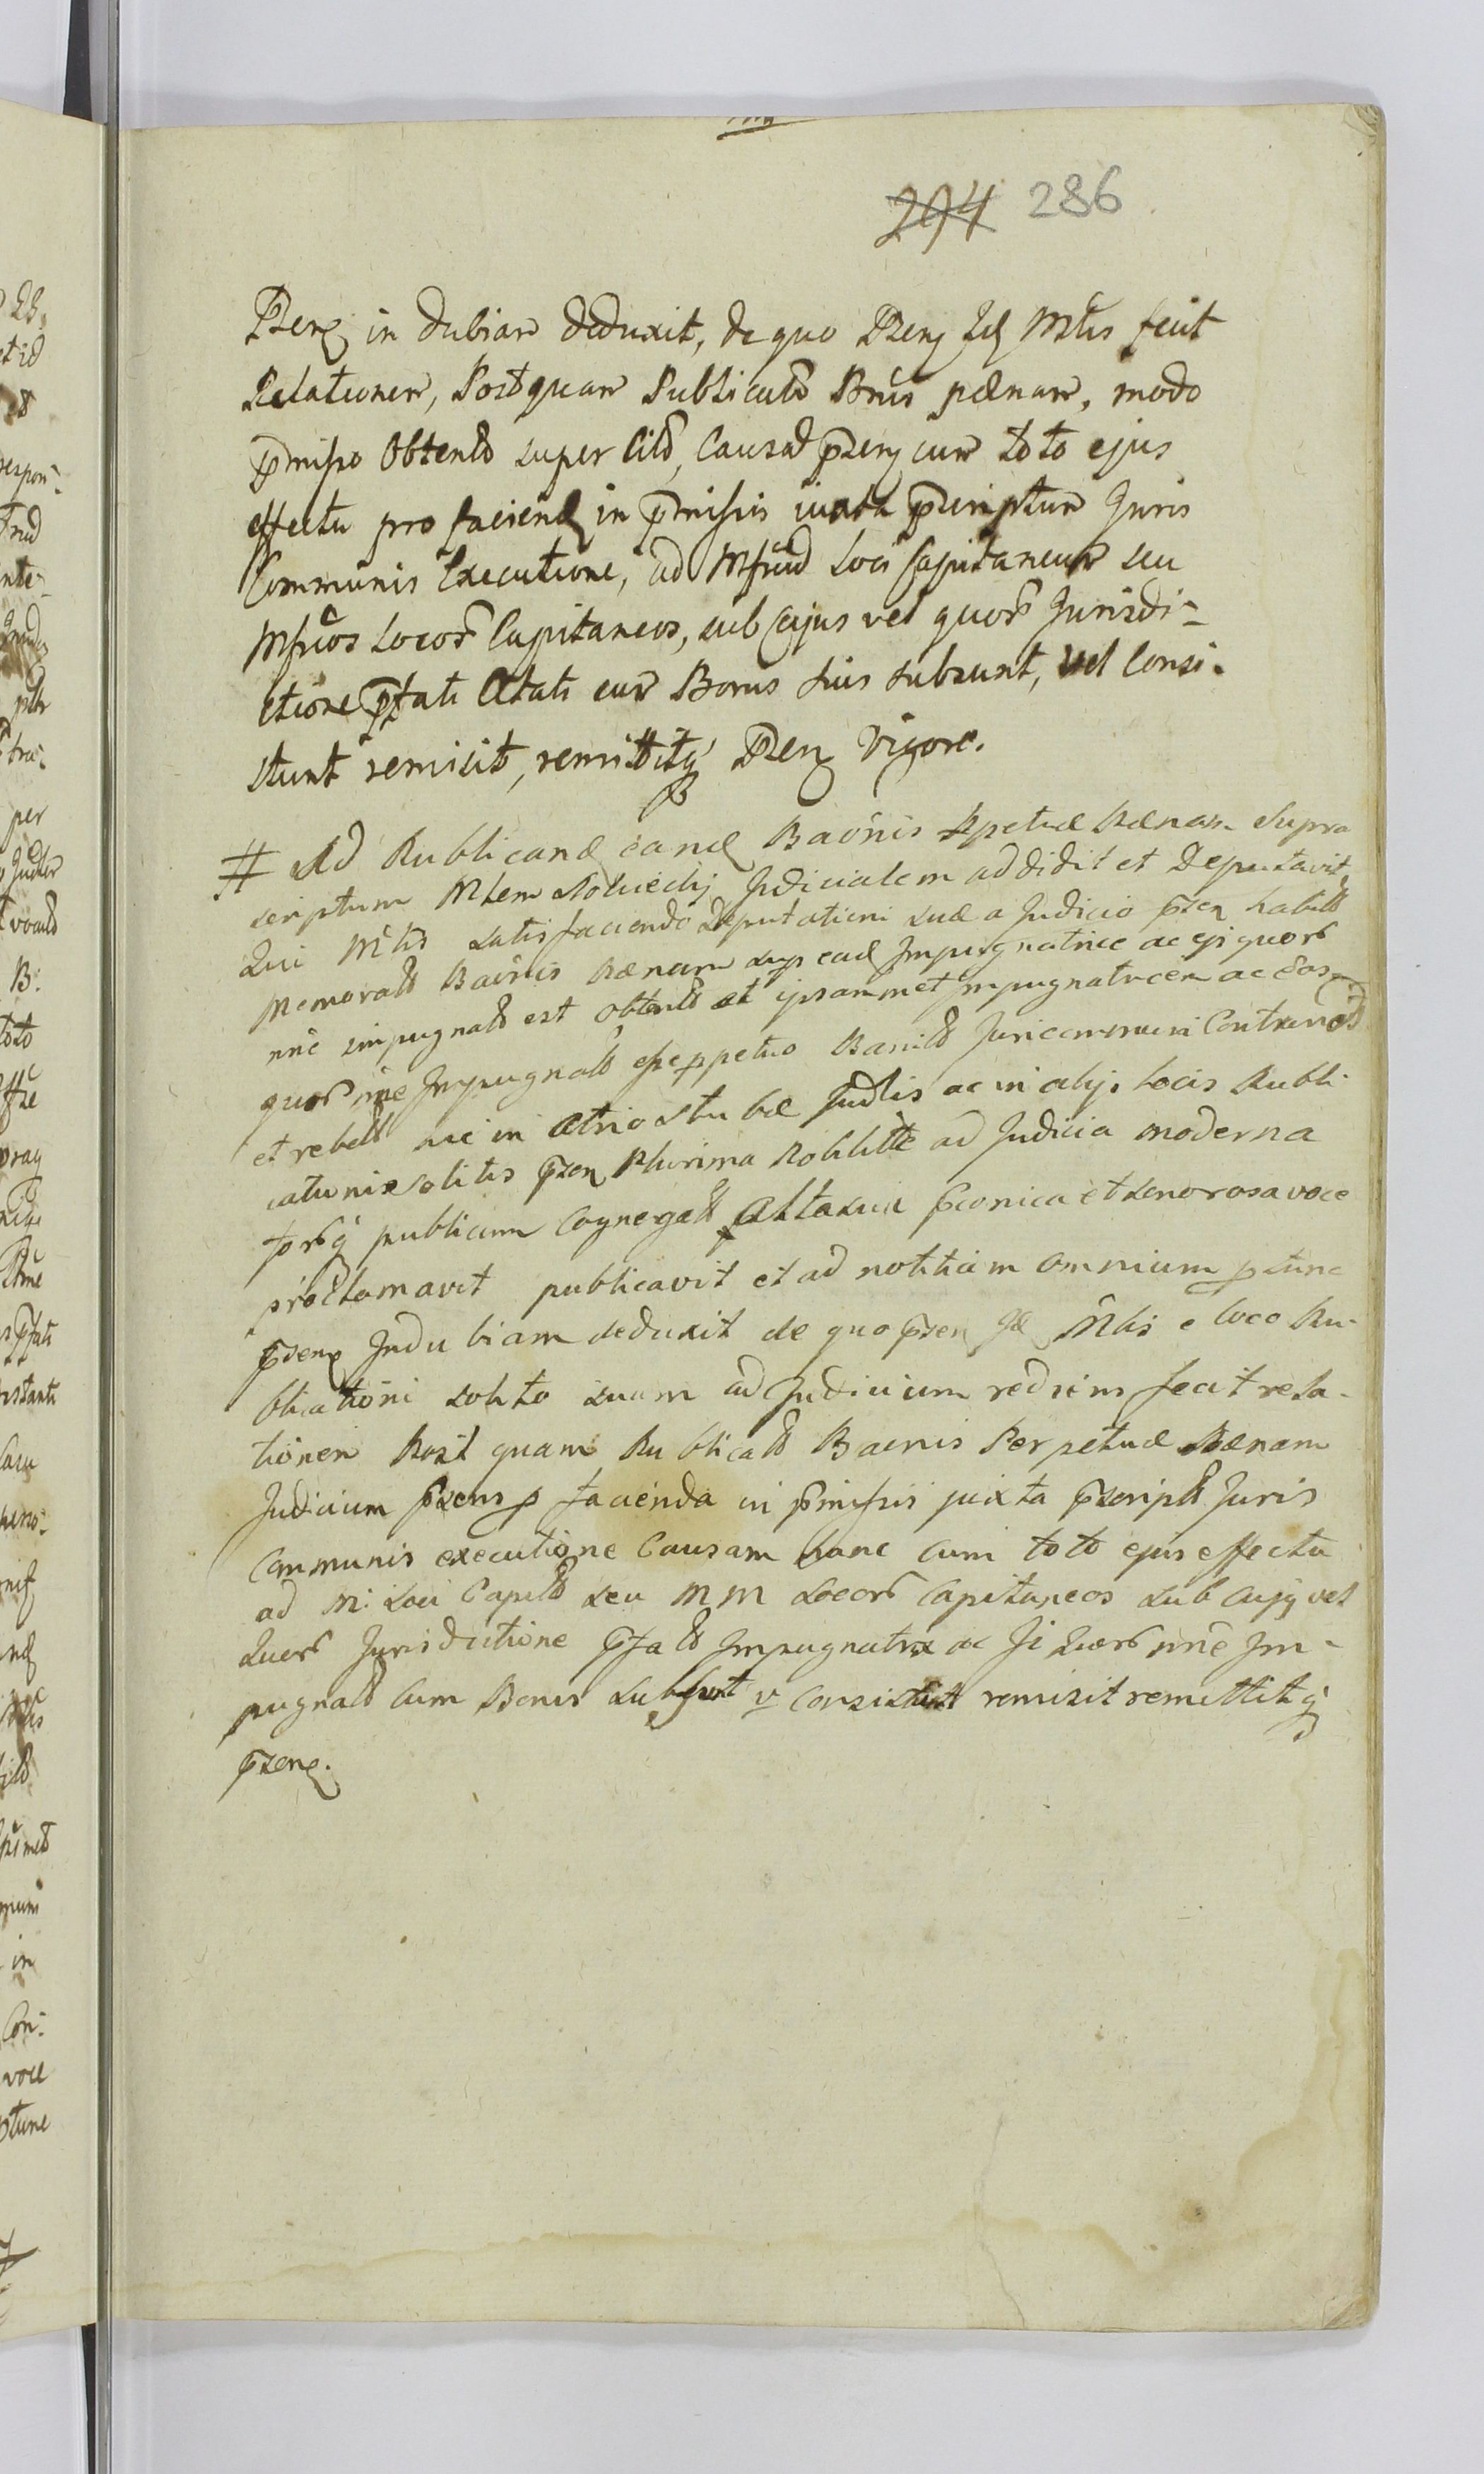 294 286
Pzen in dubiam deduxit, de quo Pzen Id Mtis fecit
Relationem, Postquam Publicato Bnis pænam, modo
pmisso Obtento super Cito, Causam pzen cum toto ejus
effectu pro faciend in pmissis iuxta pscriptum Juris
Communis Executione, ad Mfficum Loci Capitaneum seu
Mfficos Locor Capitaneos, sub cujus vel quor Jurisdi-
ctione pfati Citati cum Bonis suis subsunt, vel Consi-
stunt remisit, remittitq Pzen Vigore.
# Ad Publicand eand Baonis Ppetuæ Pænam supra
scriptum Mlem Judicialem addidit et Deputavit,
Qui Mtis satisfaciendo Deputationi suæ a Judicio pzen habitæ
Memorato Baonis Pænam sup ead Impugnatrice ac ejquor
nne impugnato est obtento et ipsammet Impugnatricem ac eos
quor nne Impugnato esse ppetuo Banito Juricommuni Contraro
et rebell hic in Atrio Stubæ Judlis ac in alijs locis Publi
cationi solitis pzen Plurima Nobilitte ad Judicia moderna
forq publicum Congregato Alta sui pconica et sonorosa voce
proclamavit publicavit et ad notitiam omnium ptunc
pzen Indubiam deduxit de quo pzen Id Mtis e loco Pu-
blicationi solito suam ad Judicium rediens fecit rela-
tionem Post quam Publicato Baonis Perpetuæ Pænam
Judicium pzens p facienda in pmissis juxta pscripto Juris
Communis executione Causam hanc cum toto ejus effectu
ad M: Loci Capito seu MM Locor Capitaneos sub cujq vel
quor Jurisdictione pfato Impugnatrix ac Ji quor nne Im-
pugnato cum Bonis subsunt v Consistunt remisit remittitq
pzen.